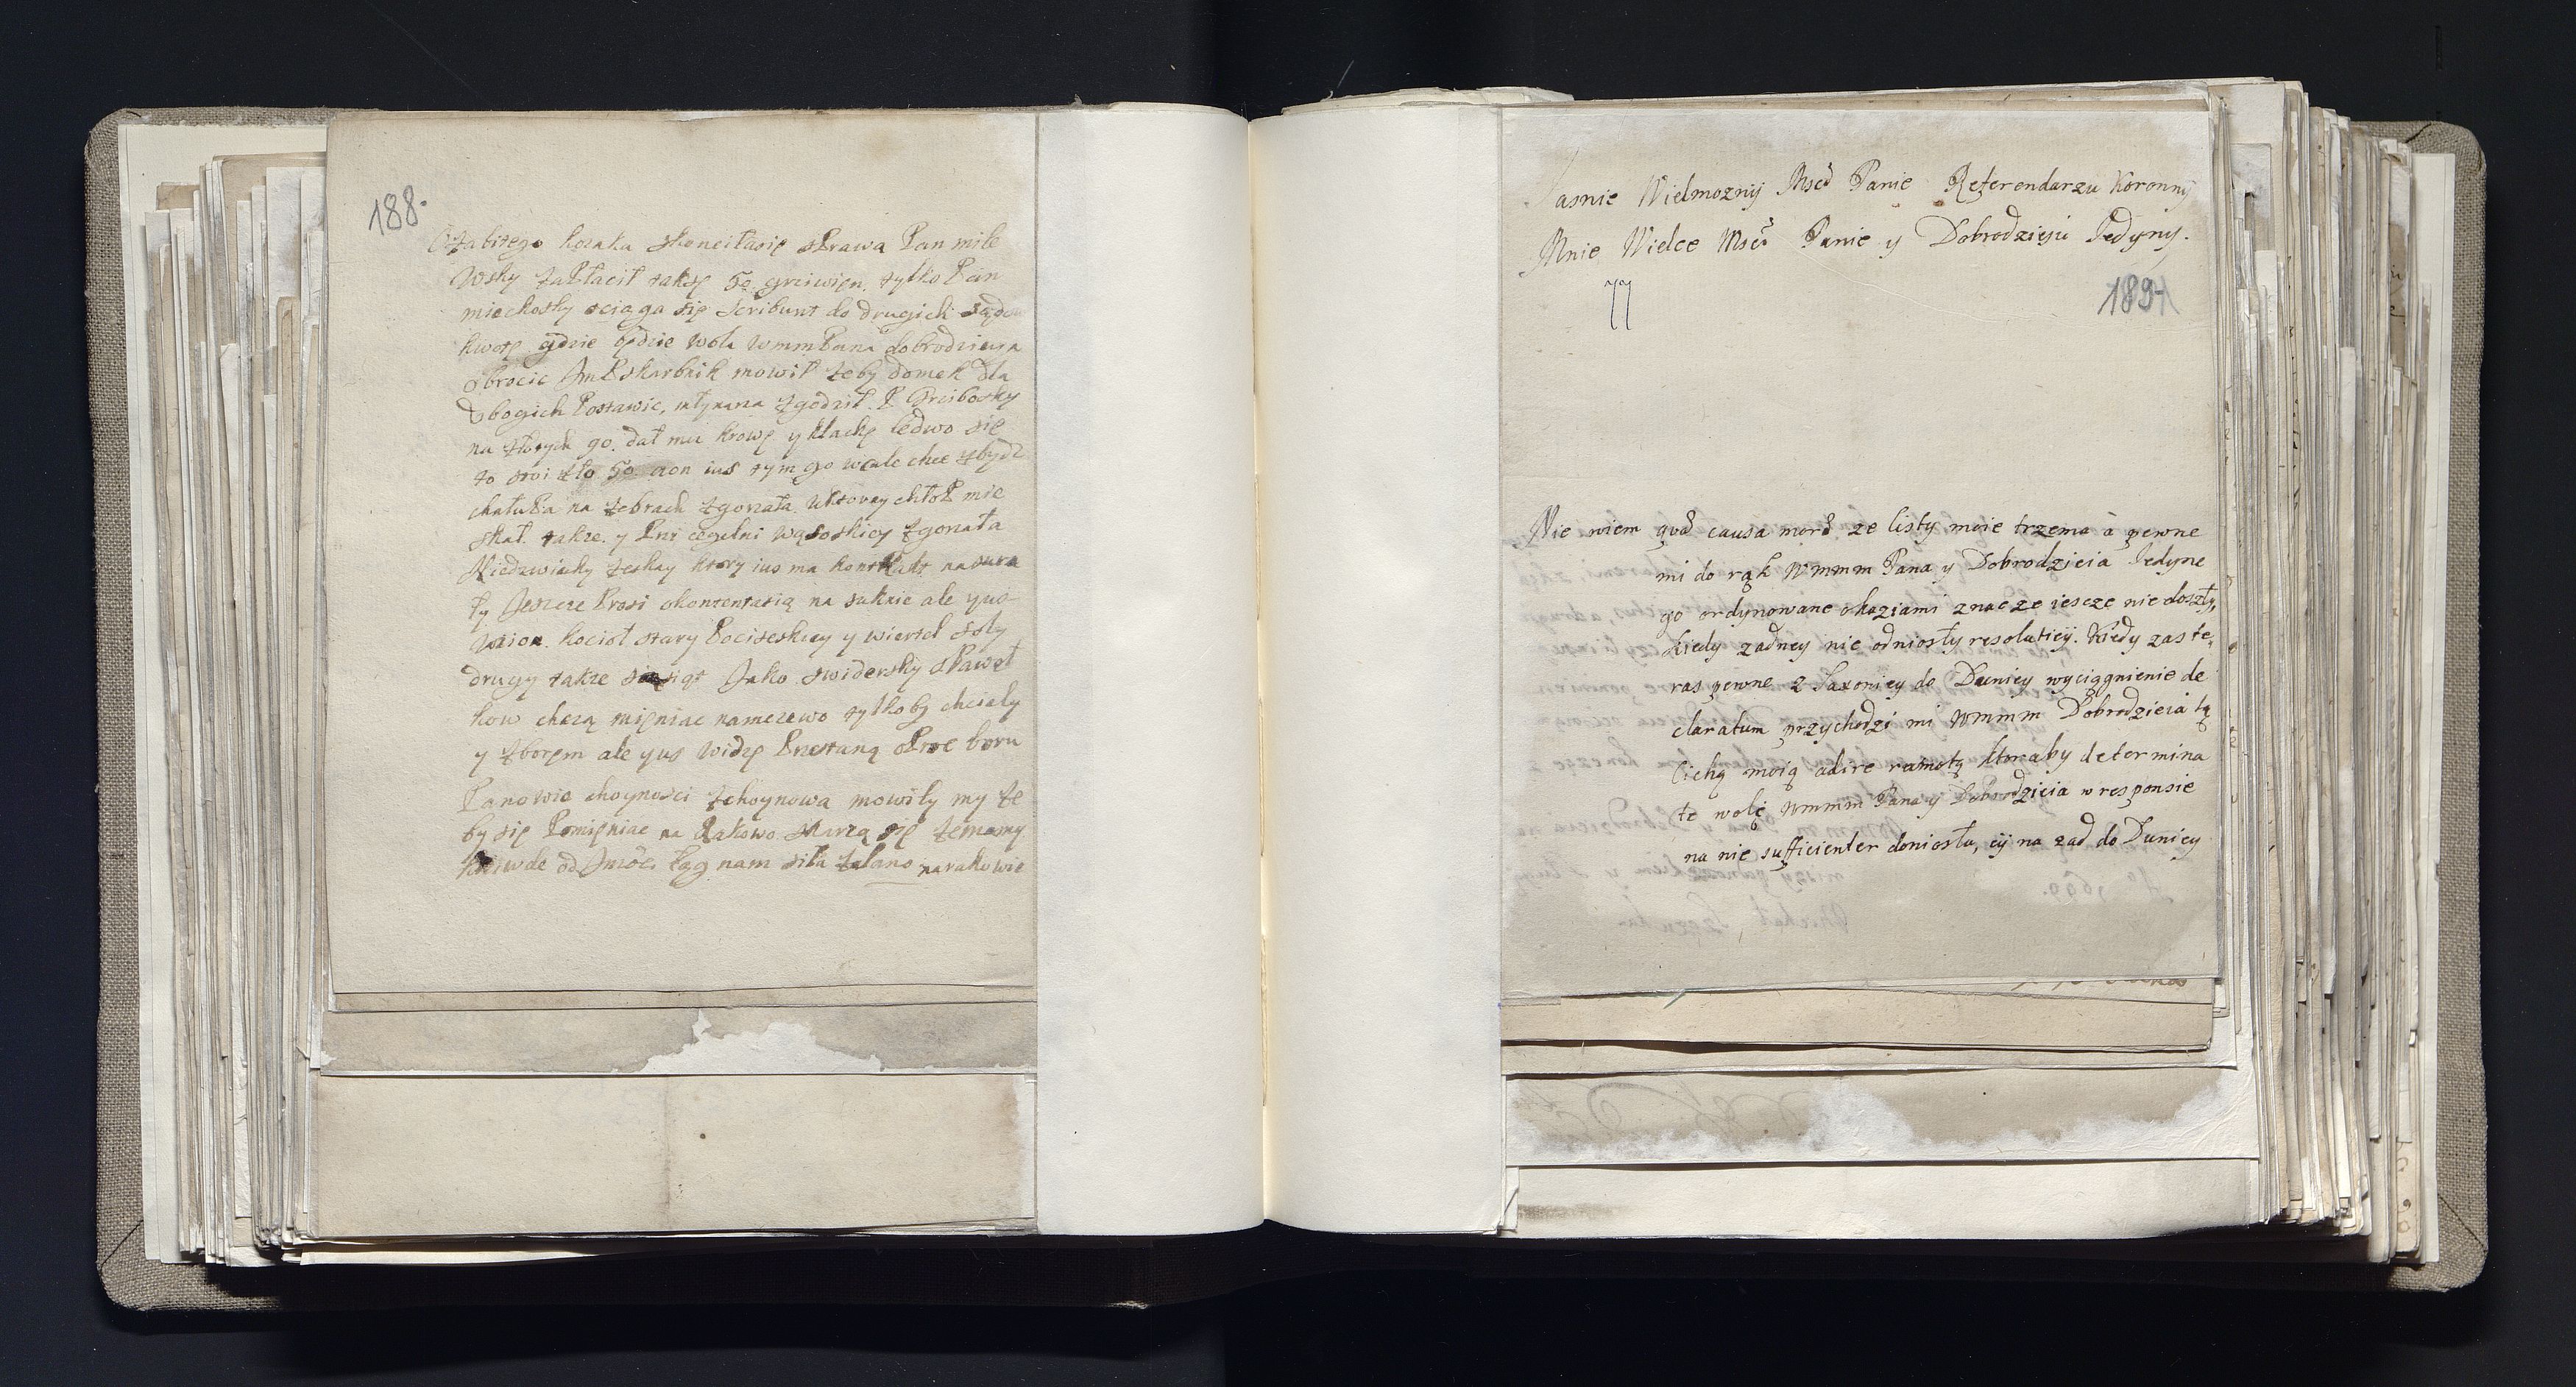 188.
zabitego kozaka skonciłasię sprawa Pan mile
wsky zapłacił taksę 50 grziwien, tylko Pan
miechosky ociąga się scribunt do drugich sądow
kwotę gdzie będzie wola WmmPana dobrodzieja
obrocic Jm Pskarbnik mowił zeby domek dla
Vbogich Postawic, młynarza zgodził. P Grzibosky
na złotych 90. dał mu krowę y klaczę ledwo się
to stoi zło 50 aon ius tym go wcale chce zbydz
chałuPa na zebrach zgorzała wktorey chłoP mie
skał. takze y Przi cegelni wąsoskiey zgorzała
Niedzwiecky zeskay ktory ius ma kontrakt na
ły Jescze Prosi okontentatią na suknie ale yus
kocioł stary Pociseskiey y wiertel soly
drugy takze Jako swidersky sPaweł
kow chczą mięniac namczewo tylkoby chciely
y zborem ale yus widzę Przestaną oProc boru
Panowie choynosci zchoynowa mowiły my ze
by się Pomięniac na Rakowo skarzą się zemamy
krziwde od Jmości łąg nam siła zalano narakowie
Jasnie Wielmozny Mscĩ Panie Referendarzu Koronny
Mnie Wielce Mscĩ Panie y Dobrodzieju Jedyny.
77
189
Nie wiem quod causa mord ze listy moie trzema à pewne
mi do rąk Wmmm Pana y Dobrodzieia Jedyne
go ordynowane okaziami znac ze iescze nie doszły,
kiedy zadney nie odniosły resolutiey. Kiedy zas te„
raz pewne z Saxoniey do Duniey wyciągnienie de
claratum przychodzi mi Wmmm Dobrodzieia tą
lichą moią adire ramotą ktoraby determina
te wolę Wmmm Pana y Dobrodzieia w responsie
na nie sufficienter doniosła, ey na zad do Duniey